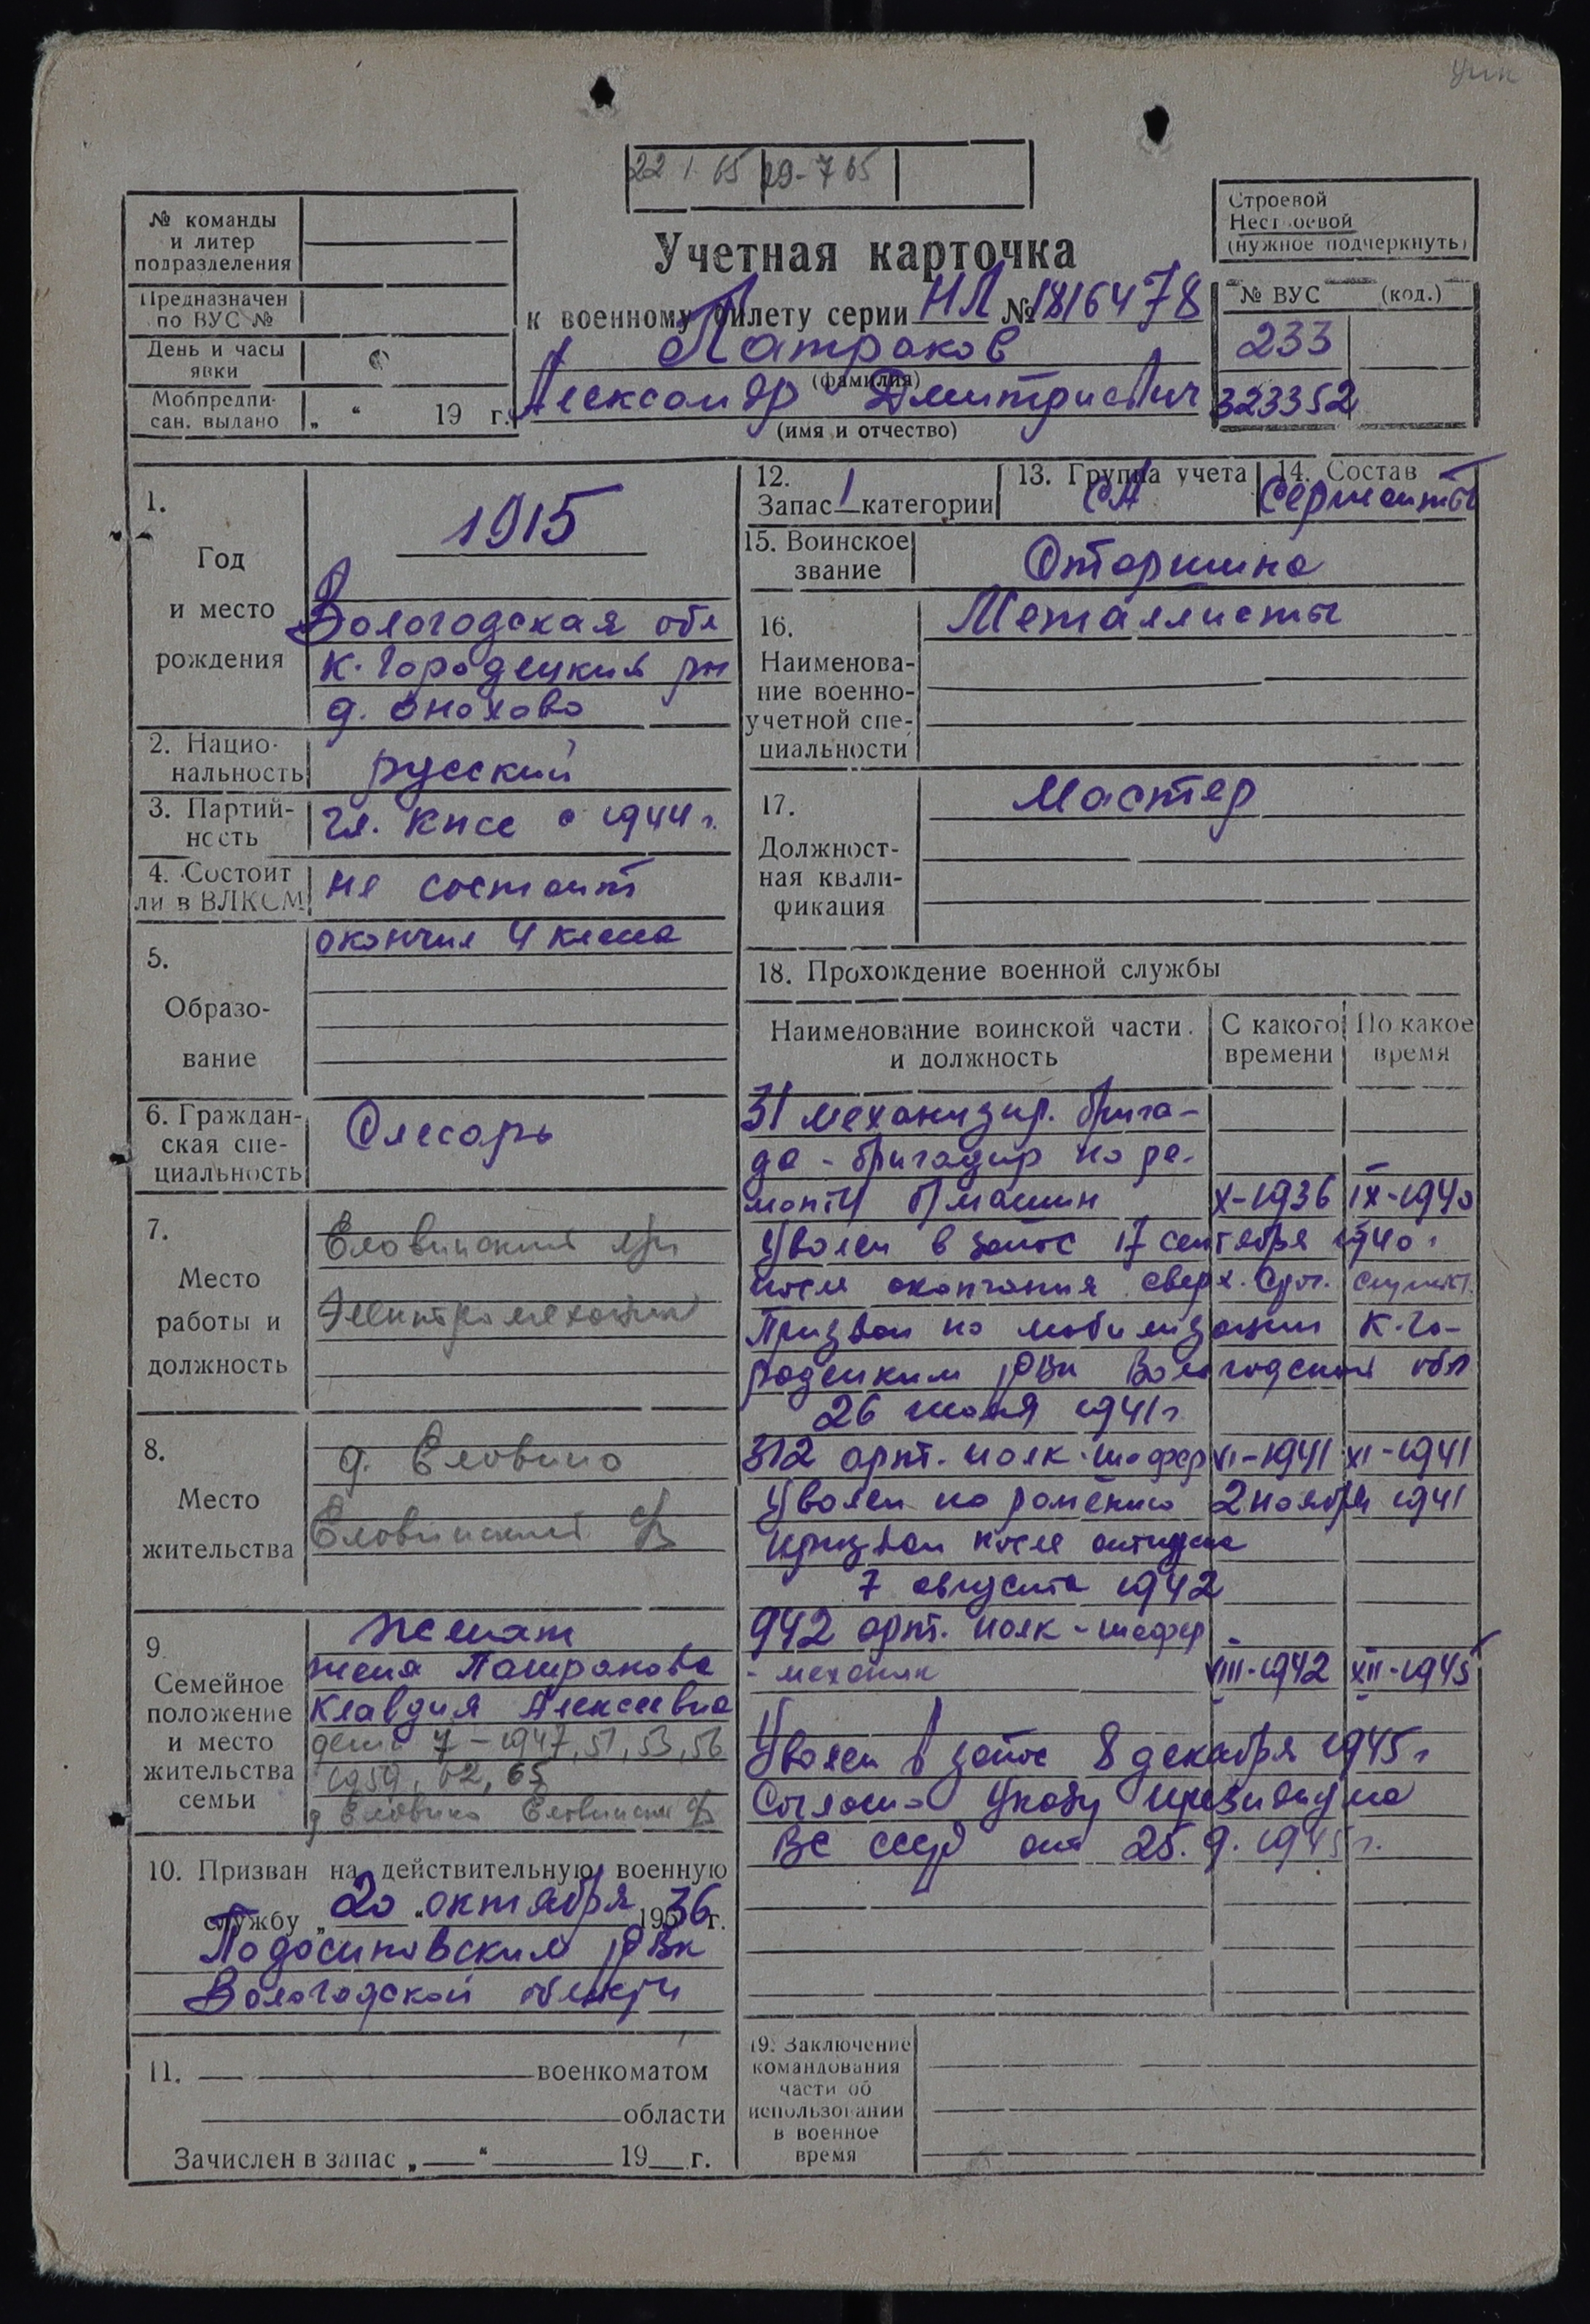 22 1 65 29-7 65
№ команды
и литер
подразделения
Предназначен
по ВУС №
День и часы
явки
Мобпредпи-
сан. выдано „ “ 19 г.
Учетная карточка
к военному билету серии НЛ № 1816478
Патраков
(фамилия)
Александр Дмитриевич
(имя и отчество)
Строевой
Нестроевой
(нужное подчеркнуть)
№ ВУС (код.)
233
323352
1.
Год
и место
рождения
1915
Вологодская обл
К. Городецкий рн
д. Онохово
2. Нацио-
нальность
русский
3. Партий-
ность
чл. КПСС с 1944 г.
4. Состоит
ли в ВЛКСМ
не состоит
5.
Образо-
вание
окончил 4 класса
6. Граждан-
ская спе-
циальность
Слесарь
7.
Место
работы и
должность
Еловинский
Электромеханик
8.
Место
жительства
д. Еловино
Еловинский
9.
Семейное
положение
и место
жительства
семьи
Женат
жена Патракова
Клавдия Алексеевна
дети 7 - 1947, 51, 53, 56
1959, 62, 65
д Еловино Еловинский
10. Призван на действительную военную
службу „20“ октября 1936 г.
Подосиновским РВК
Вологодской области
11. военкоматом
области
Зачислен в запас „ “ 19 г.
12.
Запас 1 категории
13. Группа учета
СА
14. Состав
Сержанты
15. Воинское
звание
Старшина
16.
Наименова-
ние военно-
учетной спе-
циальности
Металлисты
17.
Должност-
ная квали-
фикация
Мастер
18. Прохождение военной службы
Наименование воинской части
и должность
С какого
времени
По какое
время
31 механизир. брига-
да - бригадир по ре-
монту б/машин X-1936 IX-1940
Уволен в запас 17 сентября 1940 г
после окончания сверх. ср.
Призван по мобилизации К-Го-
родецким РВК Вологодской обл
26 июня 1941 г
312 арт. полк - шофер VI-1941 XI-1941
Уволен по ранению 2 ноября 1941
Призван после отпуска
7 августа 1942
942 арт. полк - шофер
- механик VIII-1942 XII-1945
Уволен в запас 8 декабря 1945 г
Согласно Указу президиума
ВС СССР от 25. 9. 1945 г.
19. Заключение
командования
части об
использовании
в военное
время